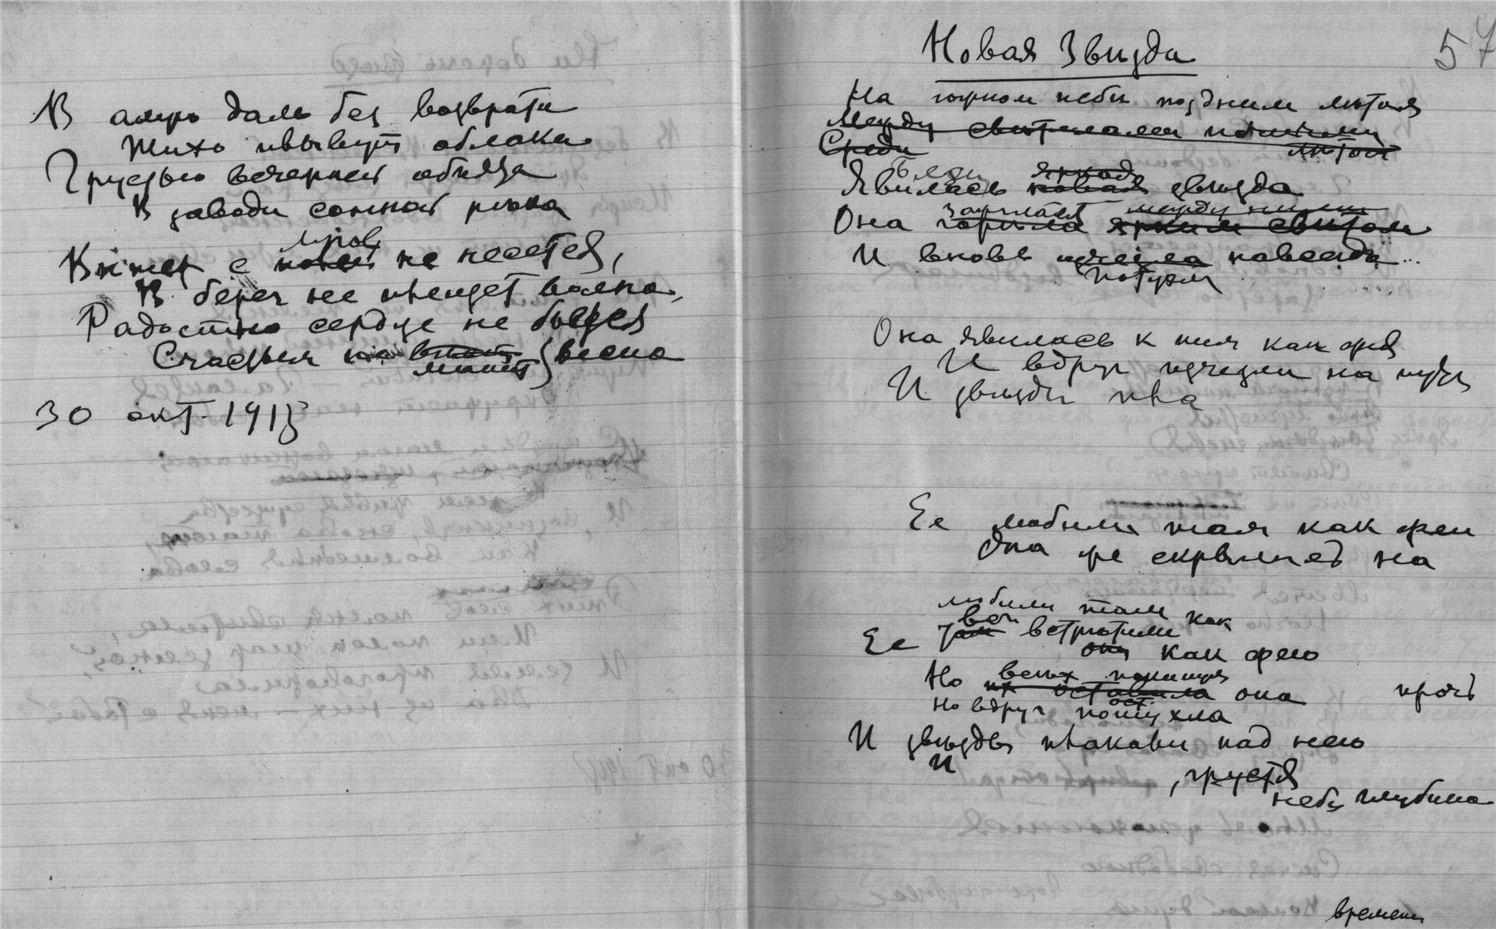 В алую даль без возврата
Тихо плывут облака
Грустью вечерней объята
В заводи сонной река
с полей лугов не несется,
В берег не плещет волна,
Радостно сердце не бьется
Счастья не
манит весна
30 окт. 1913
57
Новая Звезда
На горнем небе поздним летом
Между светилами
Среди
летом
бледн яркая
Явилась новая звезда
зажглась между ними
Она горела ярким светом
И вновь исчезла навсегда...
потухла
Она явилась к ним как фея
И вдруг исчезла на
И звезды
Ее любили там как феи
Она уж скрылась на
любили там как
все
Ее там встретили
они как фею
Но всех покинув
их оставила она прочь
Но вдруг потухла
И звезды плакали над нею
И
, грустя
неба глубина
времени